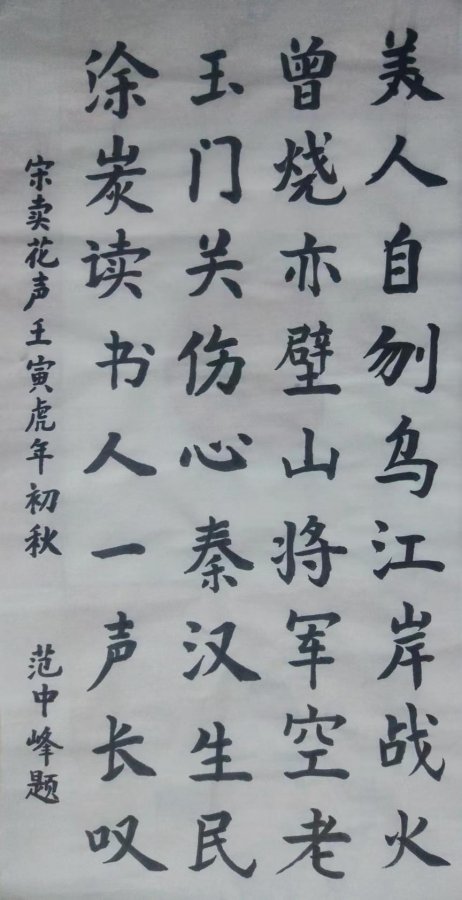 美人自刎乌江岸战火
曾烧亦壁山将军空老
玉门关伤心秦汉生民
涂炭读书人一声长叹
宋卖花声王寅虎年初秋
范中峰题